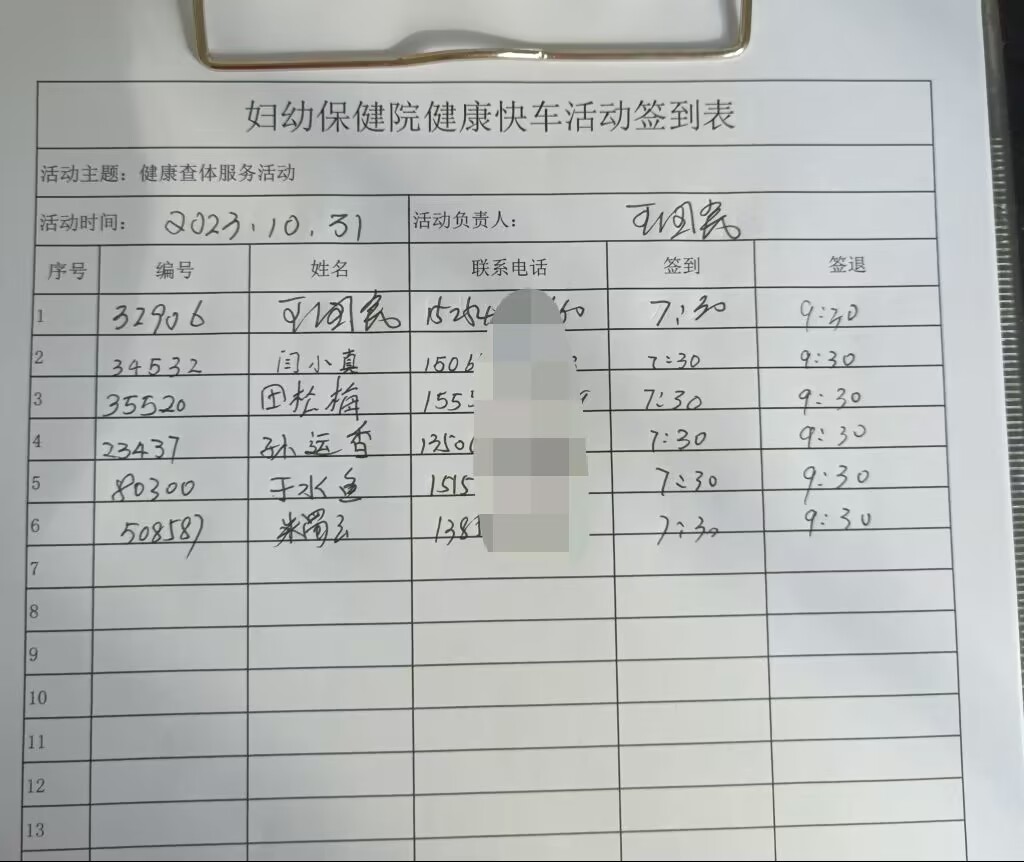 妇幼保健院健康快车活动签到表
活动主题：健康查体服务活动
活动时间： 2023.10.31 活动负责人：
序号 编号 姓名 联系电话 签到 签退
1 32906 7:30 9:30
2 34532 闫小真 7:30 9:30
3 35520 田桂梅 7:30 9:30
4 23437 孙运香 7:30 9:30
5 80300 于水鱼 7:30 9:30
6 508587 7:30 9:30
7
8
9
10
11
12
13